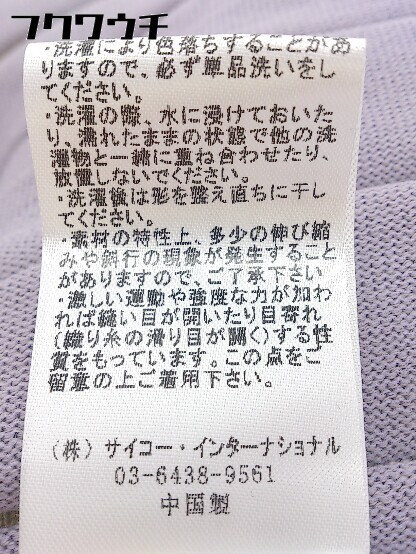 フクワウチ
・洗濯により色落ちすることがあ
りますので、必ず単品洗いをし
てください。
・洗濯の際、水に浸けておいた
り、濡れたままの状態で他の洗
濯物と一緒に重ね合わせたり、
放置しないでください。
・洗濯後は形を整え直ちに干し
てください。
・素材の特性上、多少の伸び縮
みや斜行の現象が発生すること
がありますので、ご了承下さい
・激しい運動や強度な力が加わ
れば縫い目が開いたり目寄れ
(織り糸の滑り目が開く)する性
質をもっています。この点をご
留意の上ご着用下さい。
(株)サイコー・インターナショナル
03-6438-9561
中国製